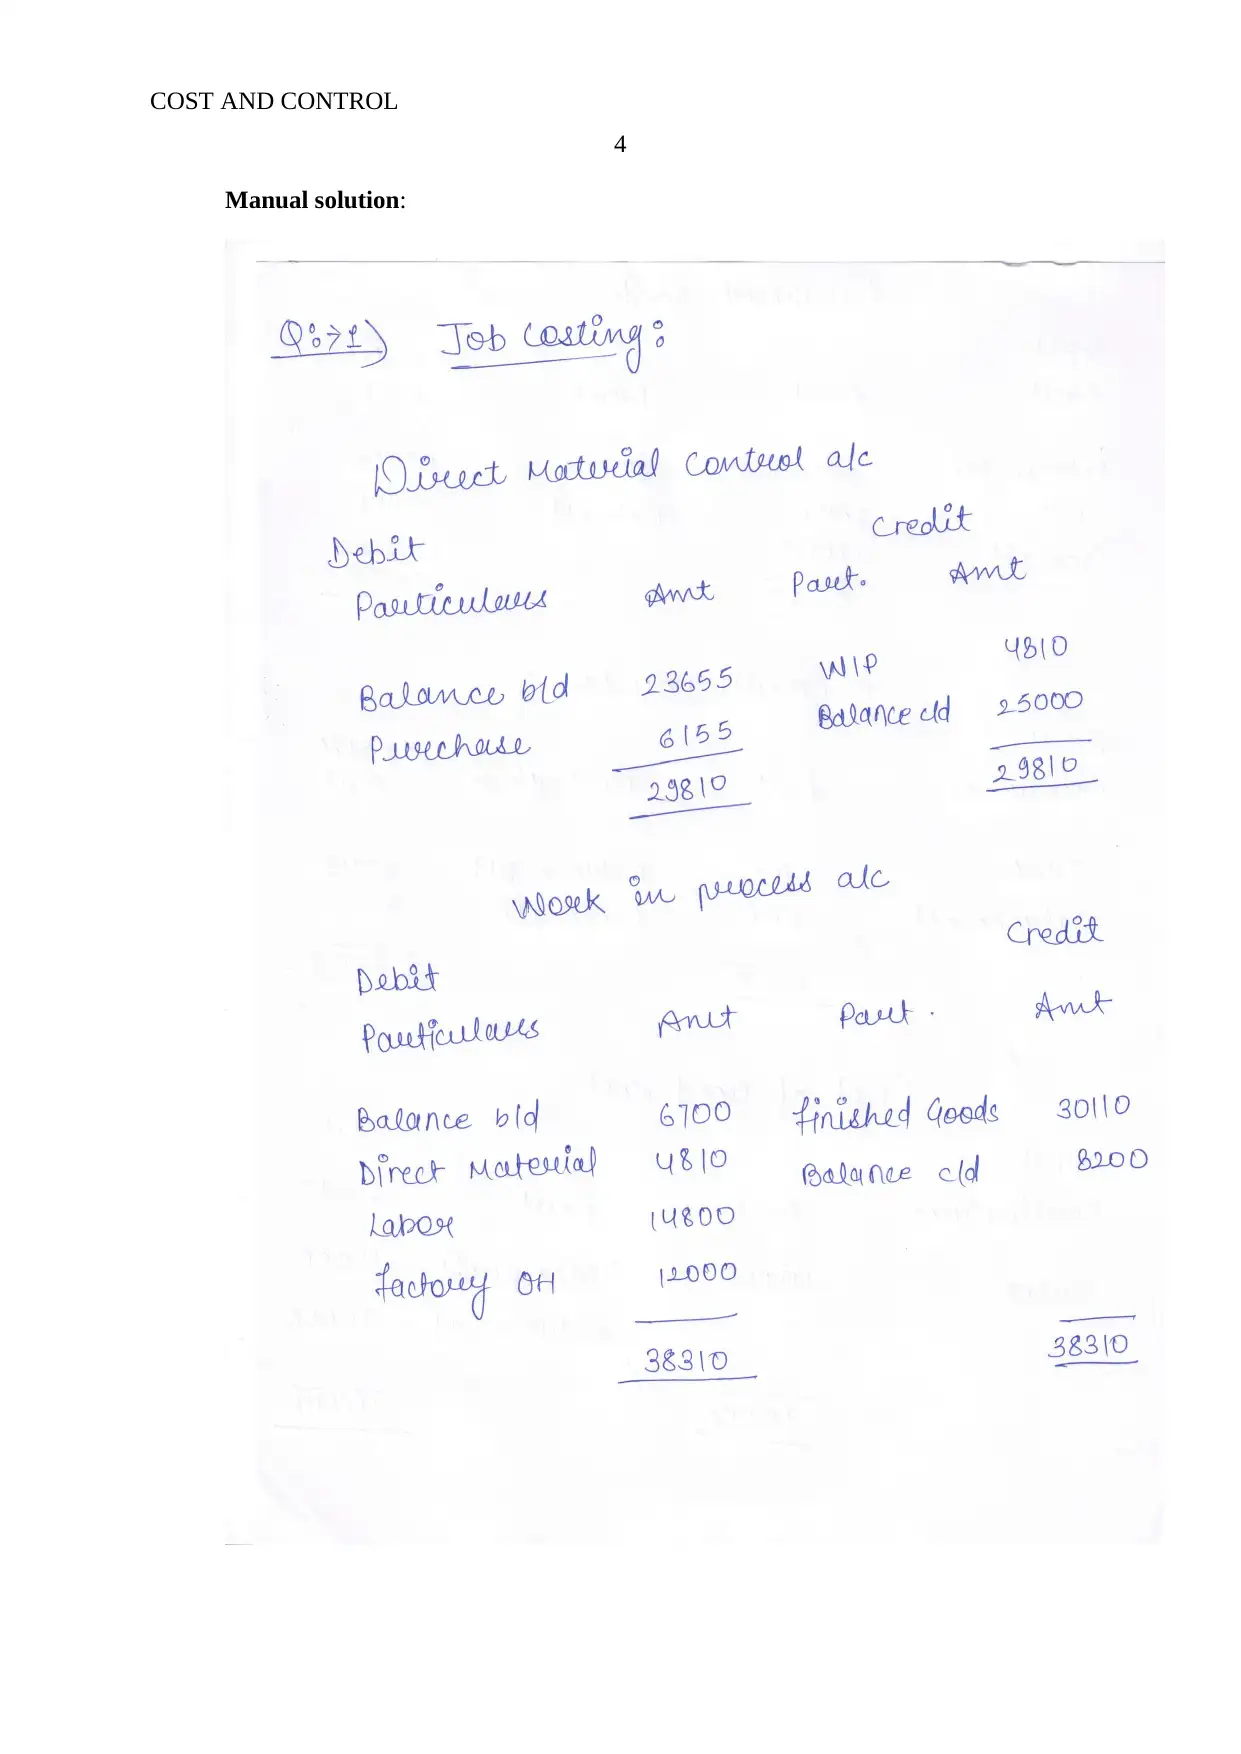 COST AND CONTROL
4
Manual solution:
Q:→1) Job Costing:
Direct Material Control a/c
Debit Credit
Particulars Amt Part. Amt
Balance b/d 23655 WIP 4810
Purchase 6155 Balance c/d 25000
29810 29810
Work in process a/c
Debit Credit
Particulars Amt Part. Amt
Balance b/d 6700 finished Goods 30110
Direct Material 4810 Balance c/d 8200
Labor 14800
factory OH 12000
38310 38310